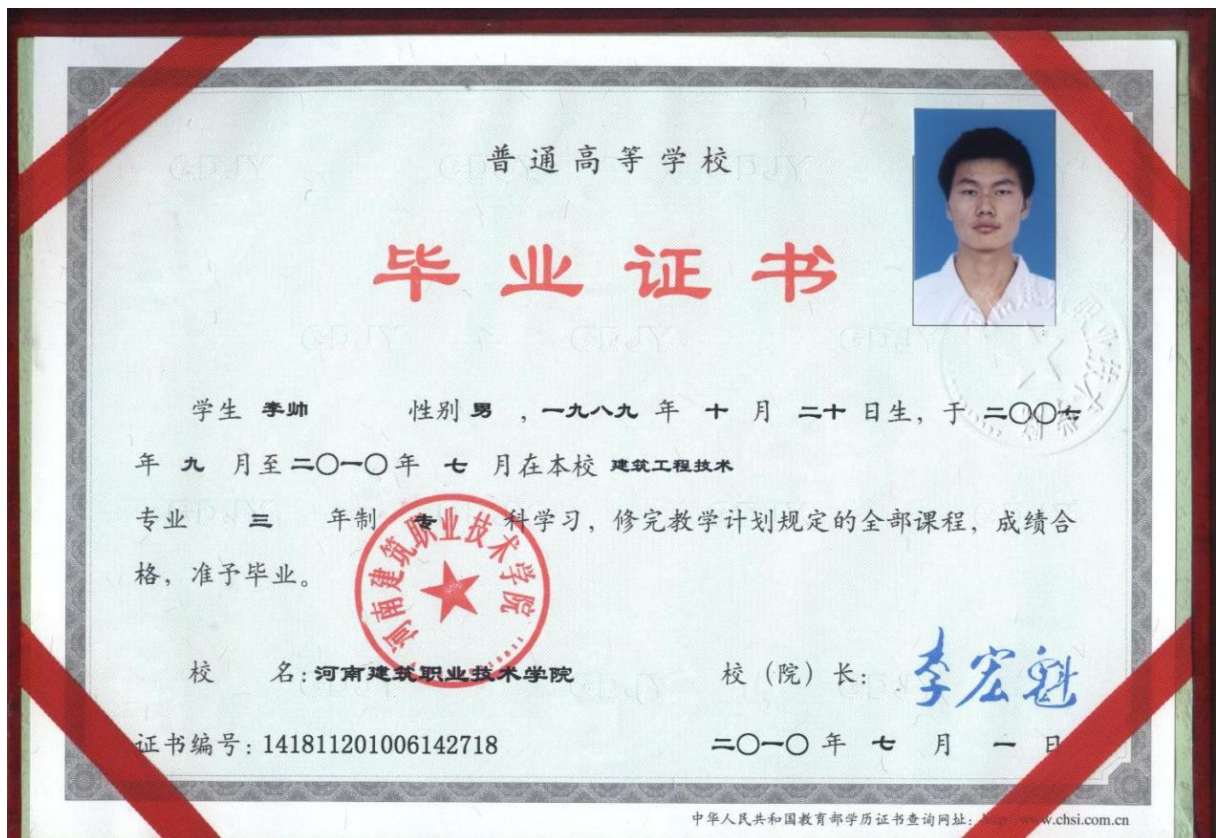 普通高等学校
毕业证书
学生 李帅 性别 男 ，一九八九 年 十 月 二十 日生，于 二〇〇七
年 九 月至 二〇一〇 年 七 月在本校 建筑工程技术
专业 三 年制 专 科学习，修完教学计划规定的全部课程，成绩合
格，准予毕业。
河南建筑职业技术学院
校 名：河南建筑职业技术学院 校（院）长：李宏魁
证书编号：141811201006142718 二〇一〇 年 七 月 一 日
中华人民共和国教育部学历证书查询网址：http://www.chsi.com.cn